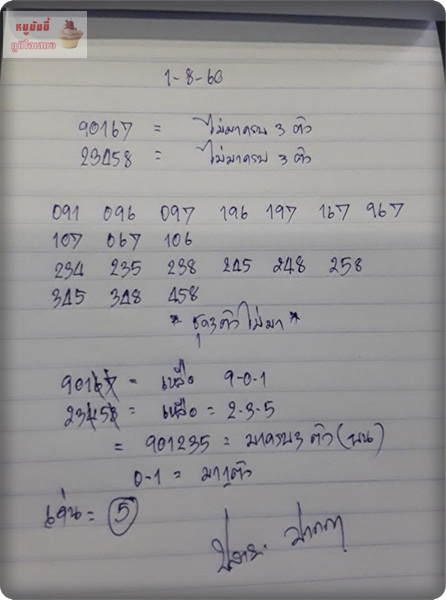 หมูบินมี่
ภูมิใจเสนอ
1-8-60
90167 = ไม่มาครบ 3 ตัว
23458 = ไม่มาครบ 3 ตัว
091 096 097 196 197 167 967
107 067 106
234 235 238 245 248 258
345 348 458
* ชุด3ตัวไม่มา *
90167 = เหลือ 9-0-1
23458 = เหลือ = 2-3-5
= 901235 = มาครบ3ตัว(บน)
0-1 = มา1ตัว
เด่น = 5